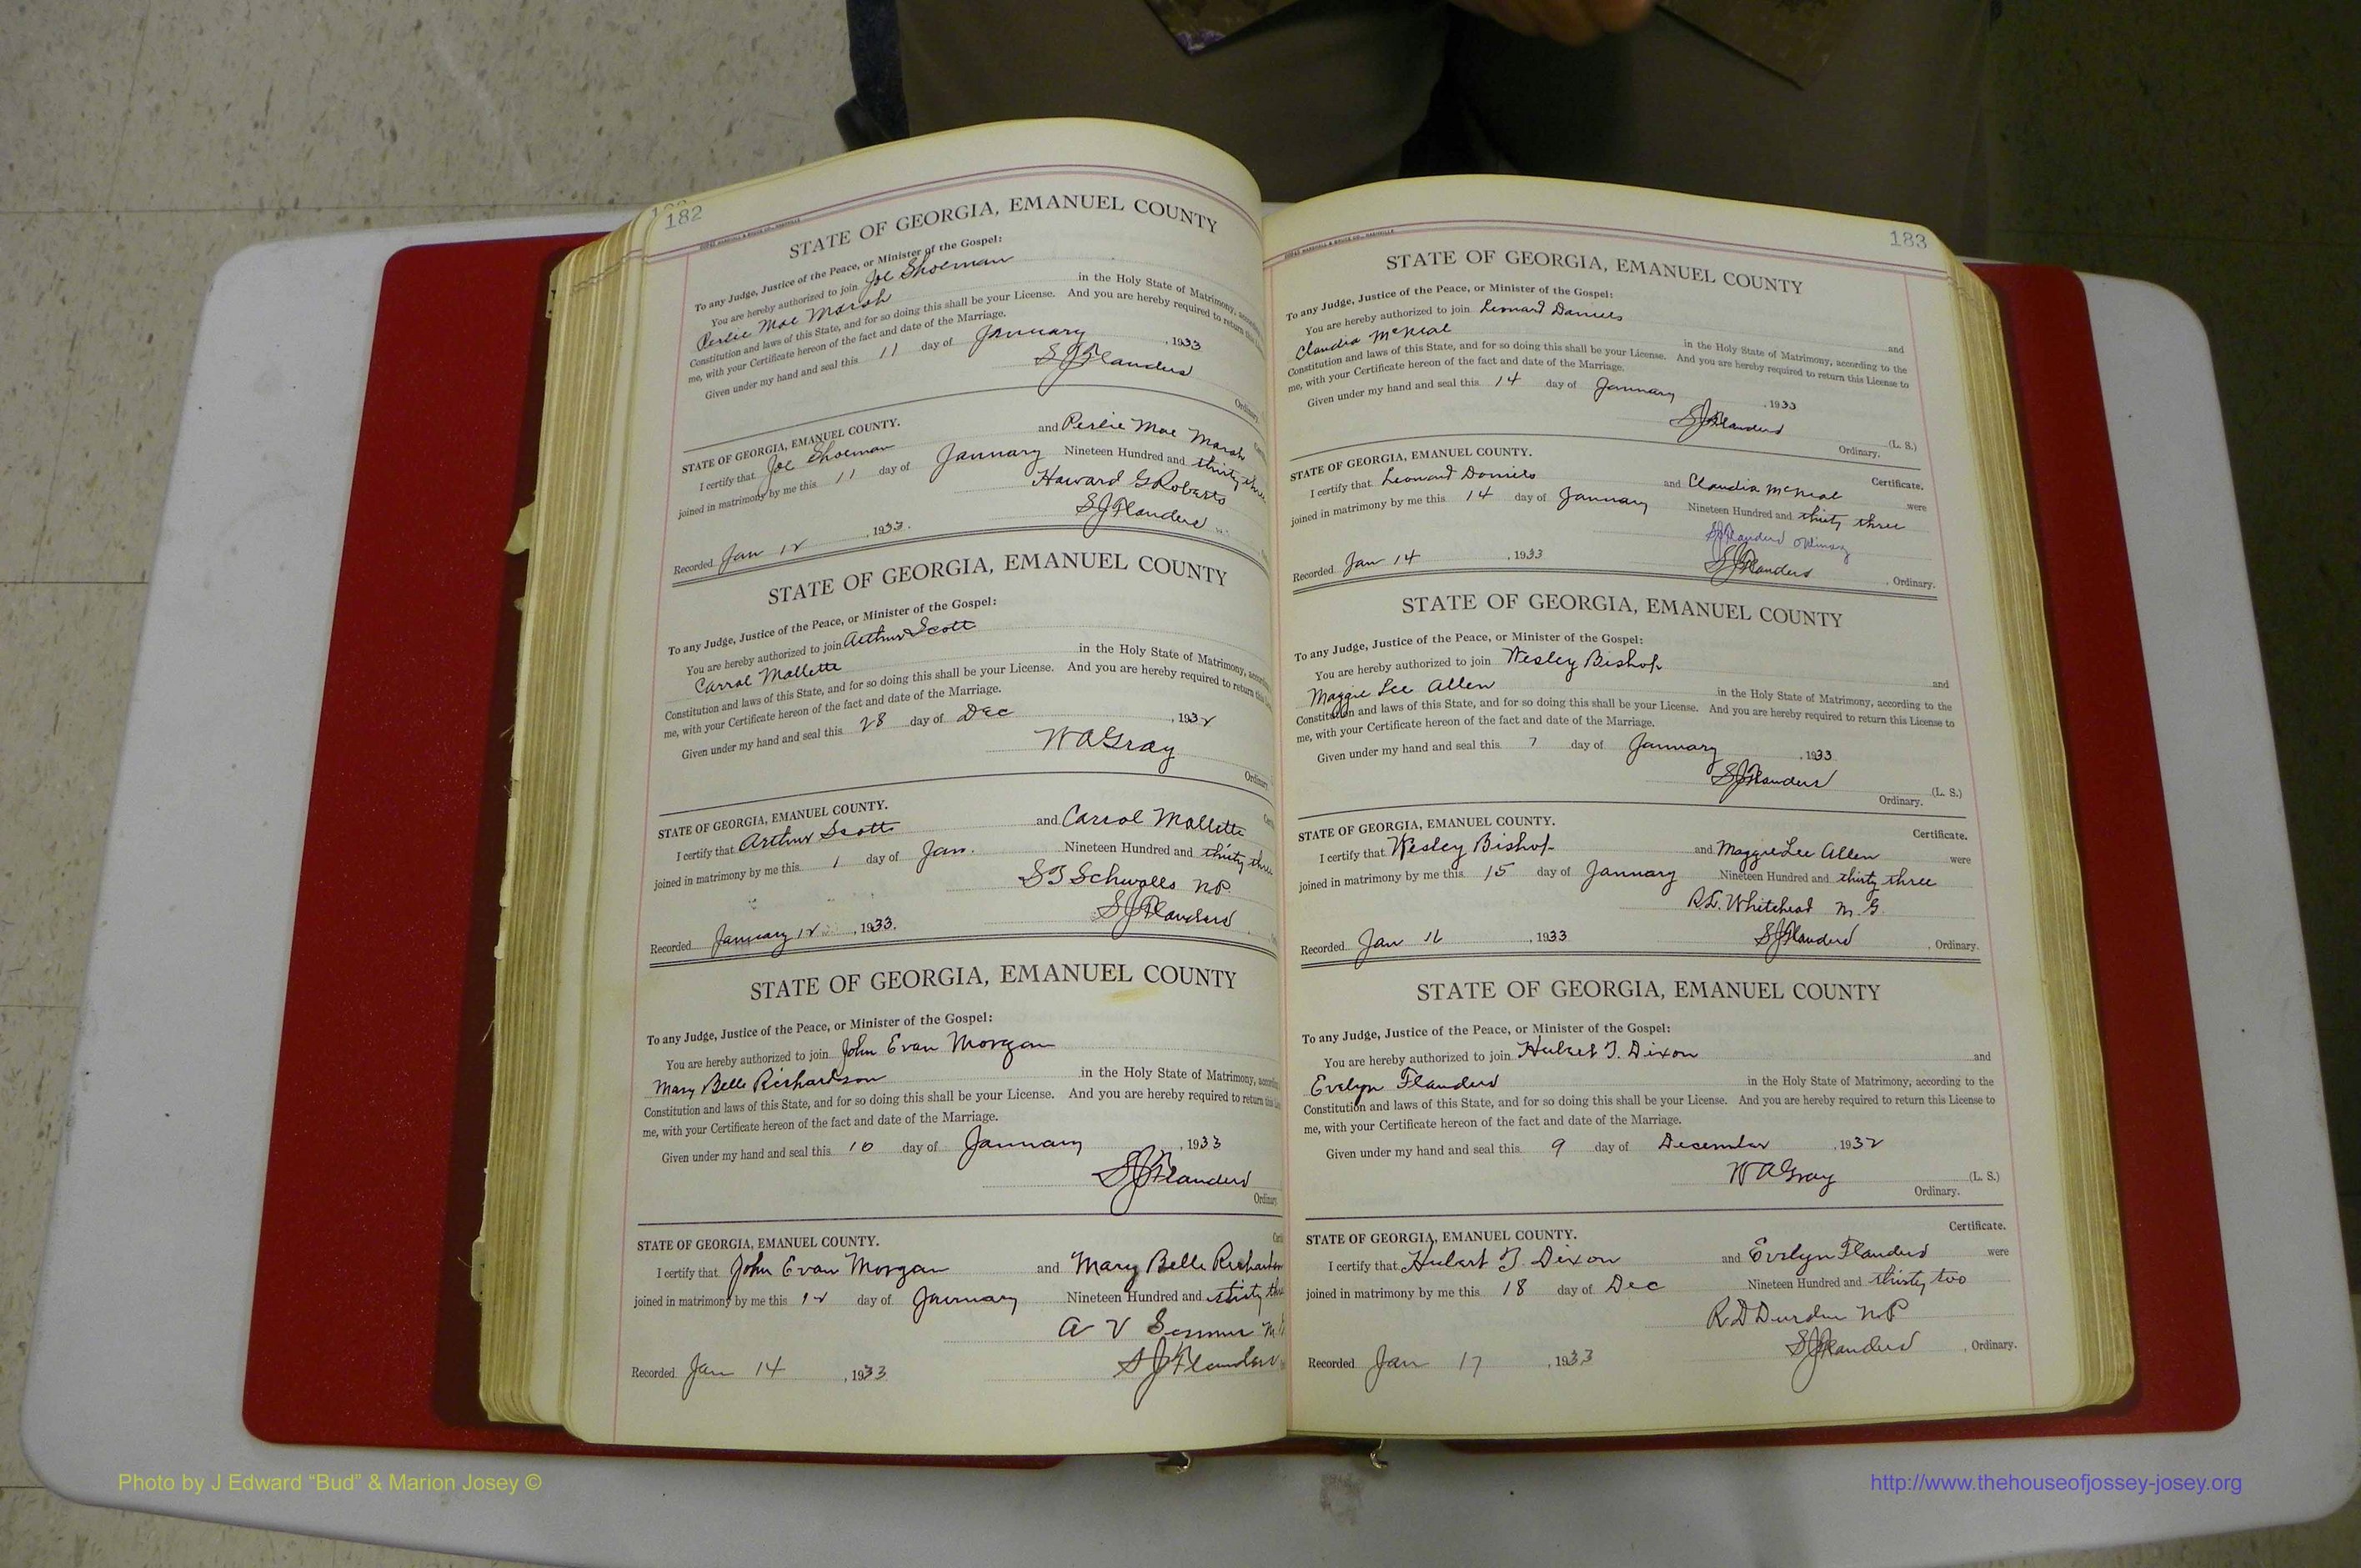 182
STATE OF GEORGIA, EMANUEL COUNTY
To any Judge, Justice of the Peace, or Minister of the Gospel:
You are hereby authorized to join Joe Shoeman
Perlie Mae Marsh in the Holy State of Matrimony,
Constitution and laws of this State, and for so doing this shall be your License. And you are hereby required to return
me, with your Certificate hereon of the fact and date of the Marriage.
Given under my hand and seal this 11 day of January, 1933
S J Flanders
Ordinary.
STATE OF GEORGIA, EMANUEL COUNTY.
I certify that Joe Shoeman and Perlie Mae Marsh
joined in matrimony by me this 11 day of January Nineteen Hundred and thirty three
Howard G Roberts
S J Flanders
Recorded Jan 12, 1933.
STATE OF GEORGIA, EMANUEL COUNTY
To any Judge, Justice of the Peace, or Minister of the Gospel:
You are hereby authorized to join Arthur Scott
Carrol Mallette in the Holy State of Matrimony,
Constitution and laws of this State, and for so doing this shall be your License. And you are hereby required to return
me, with your Certificate hereon of the fact and date of the Marriage.
Given under my hand and seal this 28 day of Dec, 1932
W A Gray
Ordinary
STATE OF GEORGIA, EMANUEL COUNTY.
I certify that Arthur Scott and Carrol Mallette
joined in matrimony by me this 1 day of Jan. Nineteen Hundred and thirty three
Schwalls N.P.
S J Flanders
Recorded January 12, 1933.
STATE OF GEORGIA, EMANUEL COUNTY
To any Judge, Justice of the Peace, or Minister of the Gospel:
You are hereby authorized to join John Evan Morgan
Mary Belle Richardson in the Holy State of Matrimony,
Constitution and laws of this State, and for so doing this shall be your License. And you are hereby required to return
me, with your Certificate hereon of the fact and date of the Marriage.
Given under my hand and seal this 10 day of January, 1933
S J Flanders
Ordinary
STATE OF GEORGIA, EMANUEL COUNTY.
I certify that John Evan Morgan and Mary Belle Richardson
joined in matrimony by me this 12 day of January Nineteen Hundred and thirty
A V
S J Flanders
Recorded Jan 14, 1933
183
STATE OF GEORGIA, EMANUEL COUNTY
To any Judge, Justice of the Peace, or Minister of the Gospel:
You are hereby authorized to join Leonard Daniels and
Claudia McNeal in the Holy State of Matrimony, according to the
Constitution and laws of this State, and for so doing this shall be your License. And you are hereby required to return this License to
me, with your Certificate hereon of the fact and date of the Marriage.
Given under my hand and seal this 14 day of January, 1933
S J Flanders (L. S.)
Ordinary.
STATE OF GEORGIA, EMANUEL COUNTY. Certificate.
I certify that Leonard Daniels and Claudia McNeal were
joined in matrimony by me this 14 day of January Nineteen Hundred and thirty three
S J Flanders Ordinary
S J Flanders, Ordinary.
Recorded Jan 14, 1933
STATE OF GEORGIA, EMANUEL COUNTY
To any Judge, Justice of the Peace, or Minister of the Gospel:
You are hereby authorized to join Wesley Bishop and
Maggie Lee Allen in the Holy State of Matrimony, according to the
Constitution and laws of this State, and for so doing this shall be your License. And you are hereby required to return this License to
me, with your Certificate hereon of the fact and date of the Marriage.
Given under my hand and seal this 7 day of January, 1933
S J Flanders (L. S.)
Ordinary.
STATE OF GEORGIA, EMANUEL COUNTY. Certificate.
I certify that Wesley Bishop and Maggie Lee Allen were
joined in matrimony by me this 15 day of January Nineteen Hundred and thirty three
R.L. Whitehead M. G.
Recorded Jan 16, 1933 S J Flanders, Ordinary.
STATE OF GEORGIA, EMANUEL COUNTY
To any Judge, Justice of the Peace, or Minister of the Gospel:
You are hereby authorized to join Hubert T. Dixon and
Evelyn Flanders in the Holy State of Matrimony, according to the
Constitution and laws of this State, and for so doing this shall be your License. And you are hereby required to return this License to
me, with your Certificate hereon of the fact and date of the Marriage.
Given under my hand and seal this 9 day of December, 1932
W A Gray (L. S.)
Ordinary.
Certificate.
STATE OF GEORGIA, EMANUEL COUNTY.
I certify that Hubert T. Dixon and Evelyn Flanders were
joined in matrimony by me this 18 day of Dec Nineteen Hundred and thirty two
R D Durden N P
S J Flanders, Ordinary.
Recorded Jan 17, 1933
Photo by J Edward “Bud” & Marion Josey ©
http://www.thehouseofjossey-josey.org